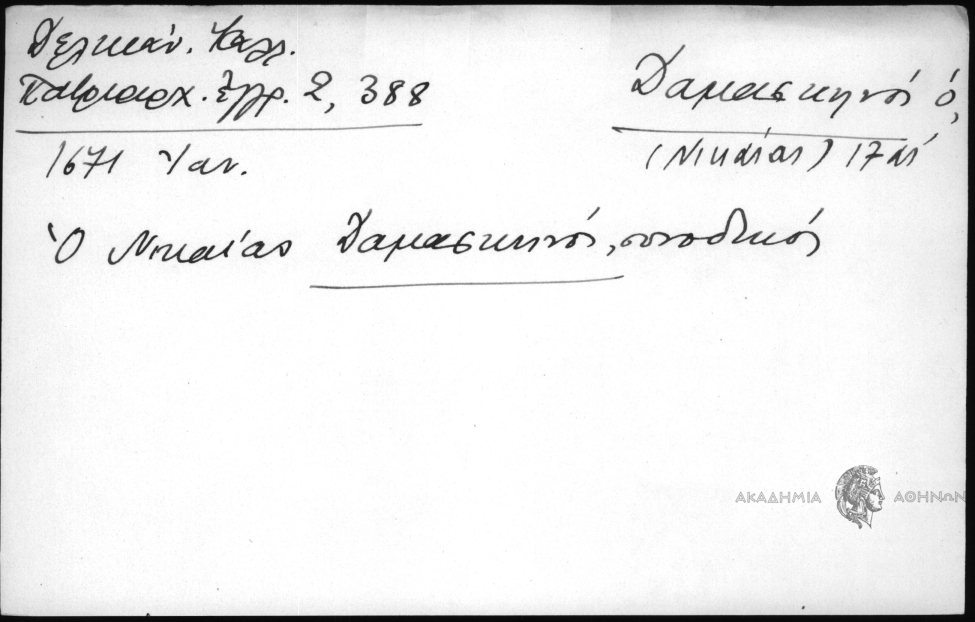 Δελικάν. Καλλ.
Πατριαρχ. ἔγγρ. 2, 388
Δαμασκηνός ὁ,
(Νικαίας) 17 αἰ
1671 Ἰαν.
Ὁ Νικαίας Δαμασκηνός, συνοδικός
ΑΚΑΔΗΜΙΑ ΑΘΗΝΩΝ